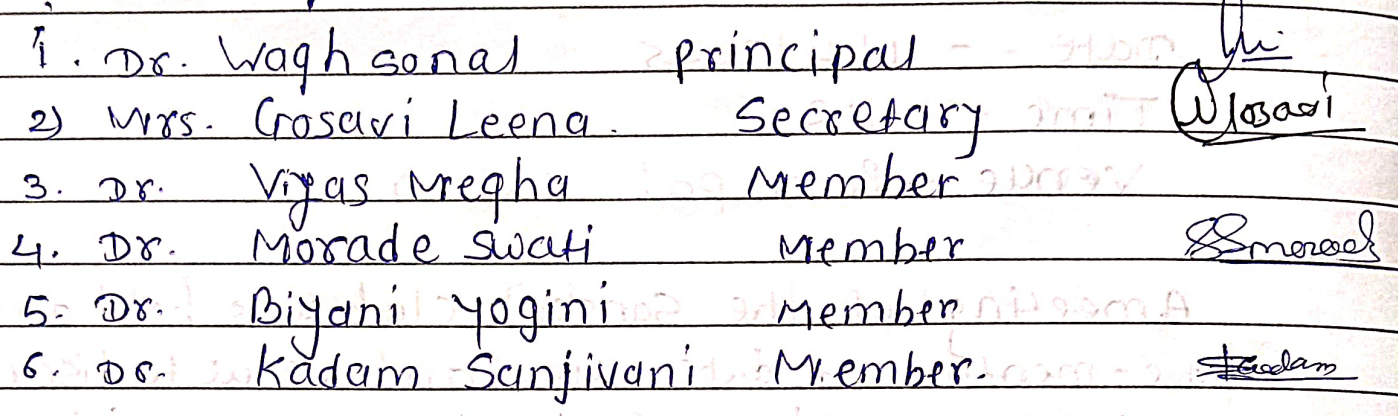 1. Dr. Wagh sonal principal
2) Mrs. Gosavi Leena. Secretary Gosavi
3. Dr. Vyas Megha Member
4. Dr. Morade Swati Member SSmorade
5. Dr. Biyani yogini Member
6. Dr. Kadam Sanjivani Member. Kadam